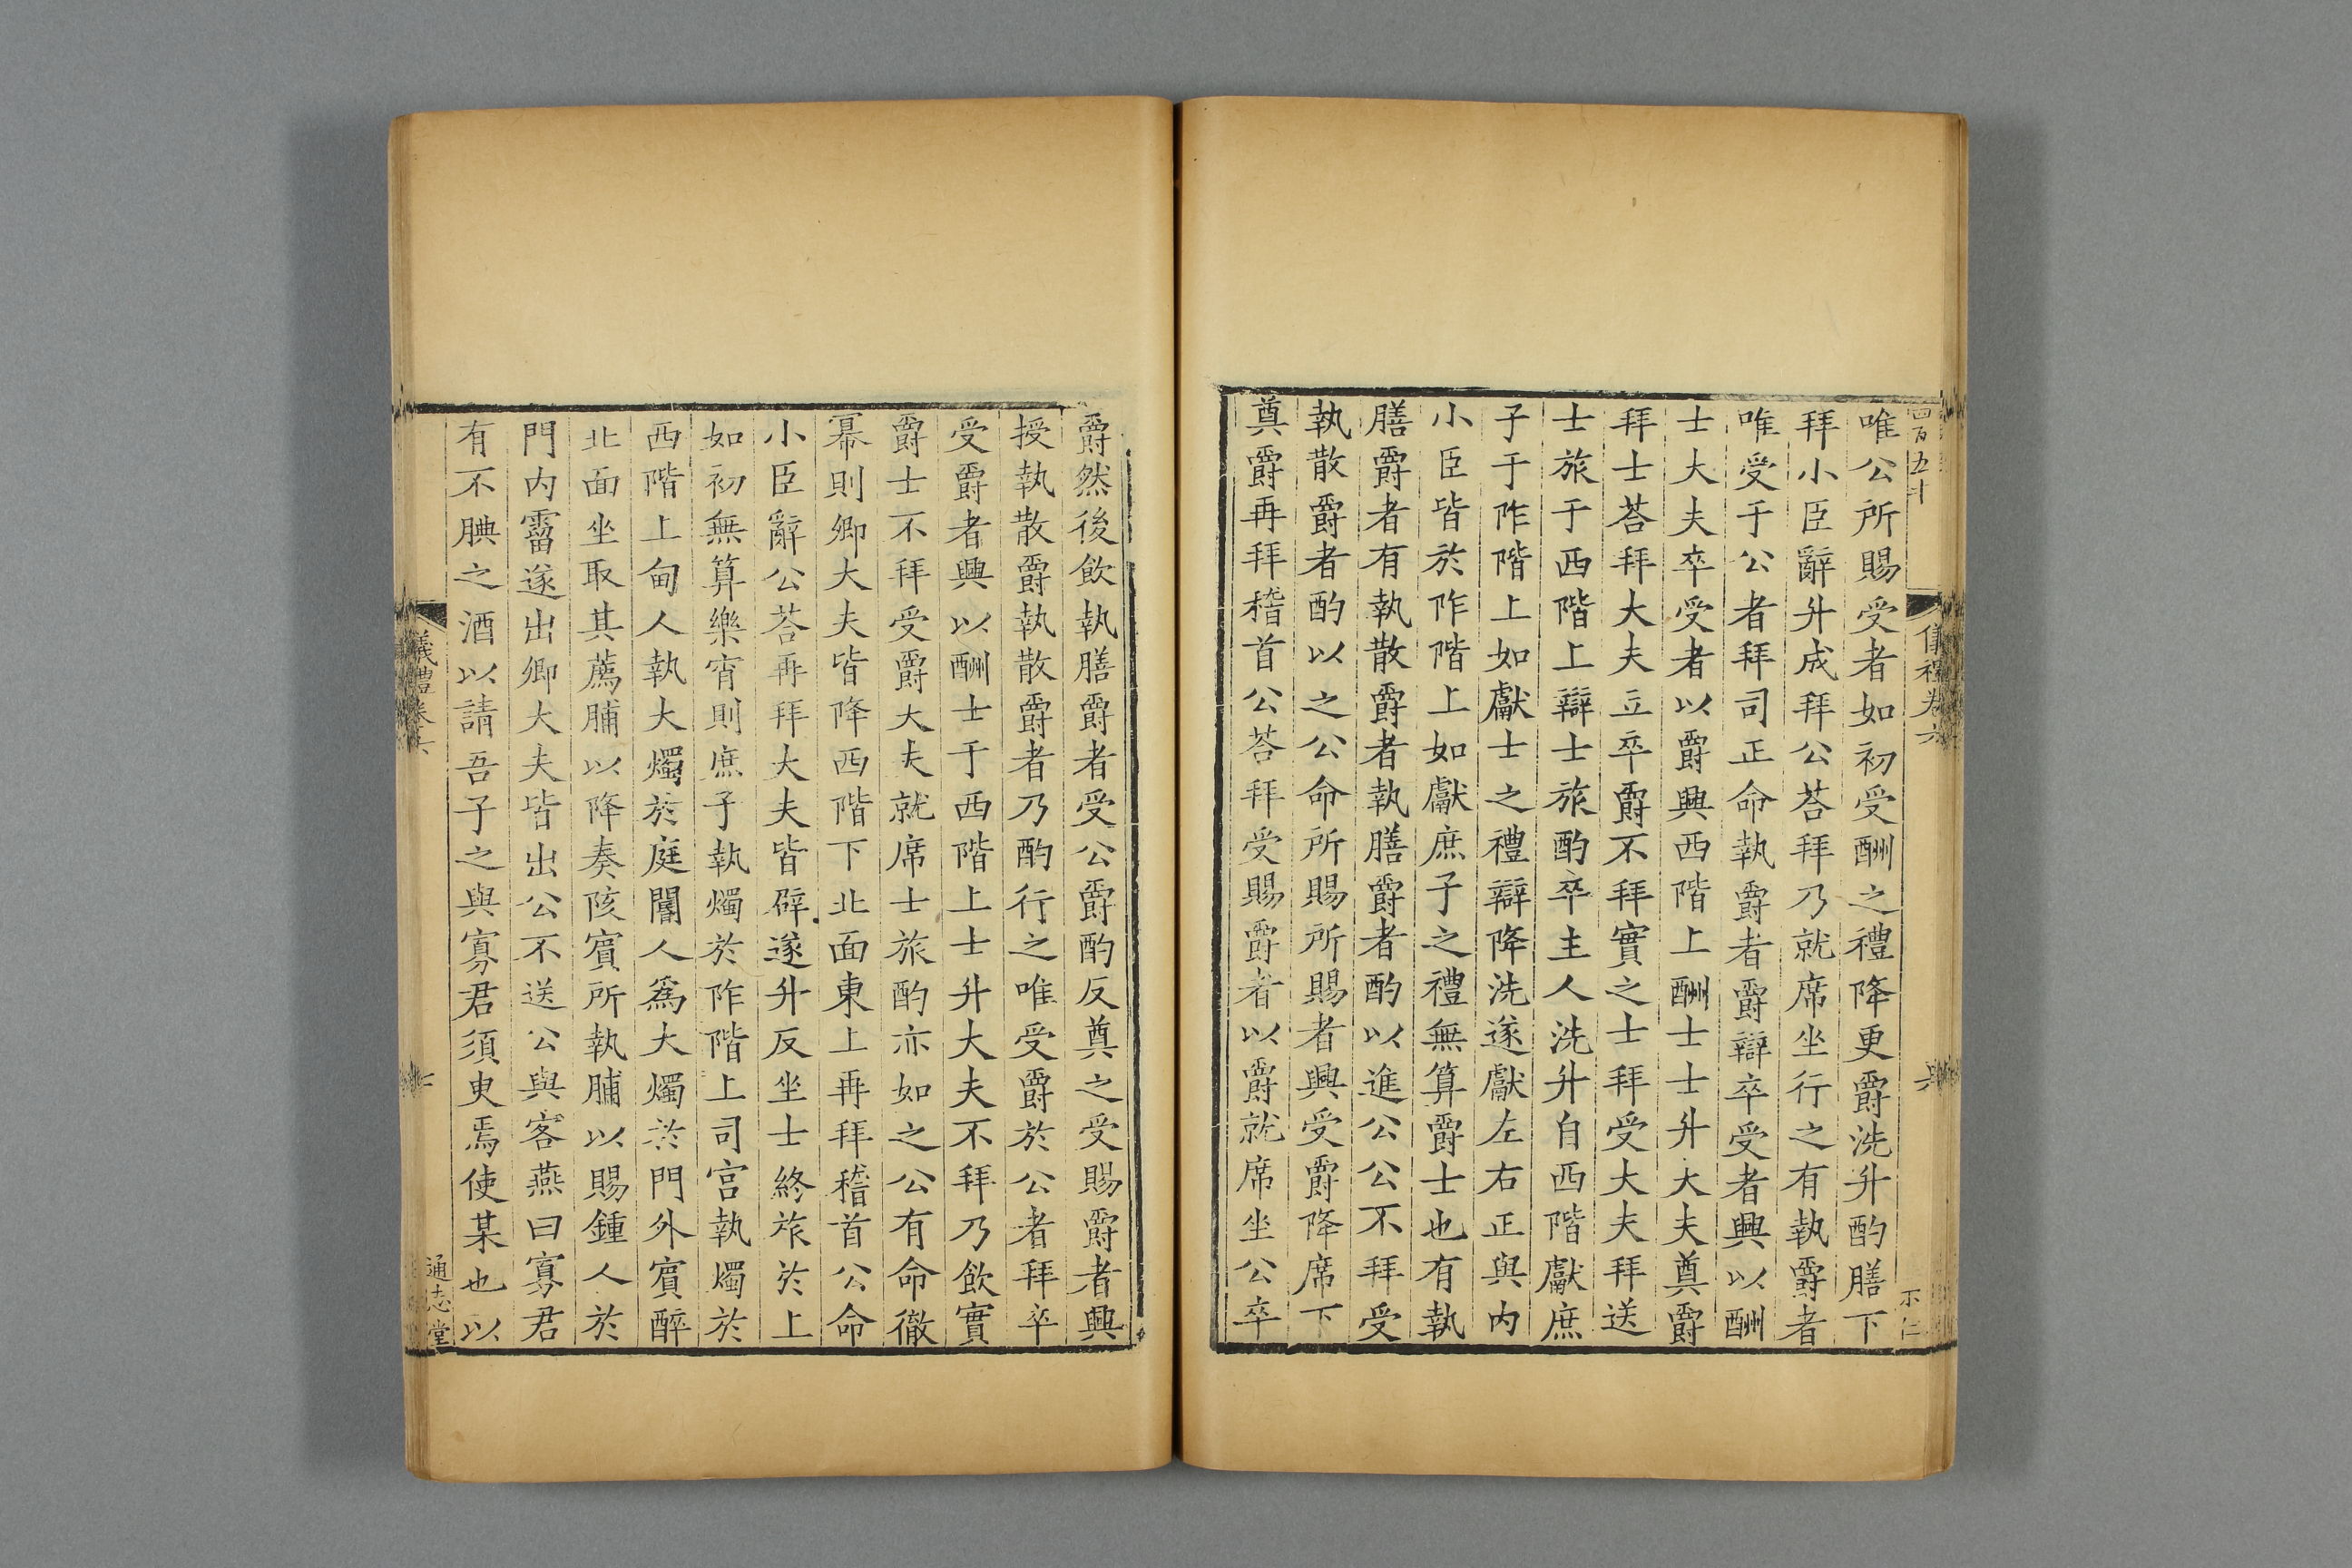 四百五十
儀禮卷六
不仁
唯公所賜受者如初受酬之禮降更爵洗升酌膳下
拜小臣辭升成拜公荅拜乃就席坐行之有執爵者
唯受于公者拜司正命執爵者爵辯卒受者興以酬
士大夫卒受者以爵興西階上酬士士升大夫奠爵
拜士荅拜大夫立卒爵不拜實之士拜受大夫拜送
士旅于西階上辯士旅酌卒主人洗升自西階獻庶
子于阼階上如獻士之禮辯降洗遂獻左右正與內
小臣皆於阼階上如獻庶子之禮無算爵士也有執
膳爵者有執散爵者執膳爵者酌以進公公不拜受
執散爵者酌以之公命所賜所賜者興受爵降席下
奠爵再拜稽首公荅拜受賜爵者以爵就席坐公卒
爵然後飲執膳爵者受公爵酌反奠之受賜爵者興
授執散爵執散爵者乃酌行之唯受爵於公者拜卒
受爵者興以酬士于西階上士升大夫不拜乃飲實
爵士不拜受爵大夫就席士旅酌亦如之公有命徹
冪則卿大夫皆降西階下北面東上再拜稽首公命
小臣辭公荅再拜大夫皆辟遂升反坐士終旅於上
如初無算樂宵則庶子執燭於阼階上司宮執燭於
西階上甸人執大燭於庭閽人爲大燭於門外賓醉
北面坐取其薦脯以降奏陔賓所執脯以賜鍾人於
門內霤遂出卿大夫皆出公不送公與客燕曰寡君
有不腆之酒以請吾子之與寡君須臾焉使某也以
儀禮卷六
通志堂